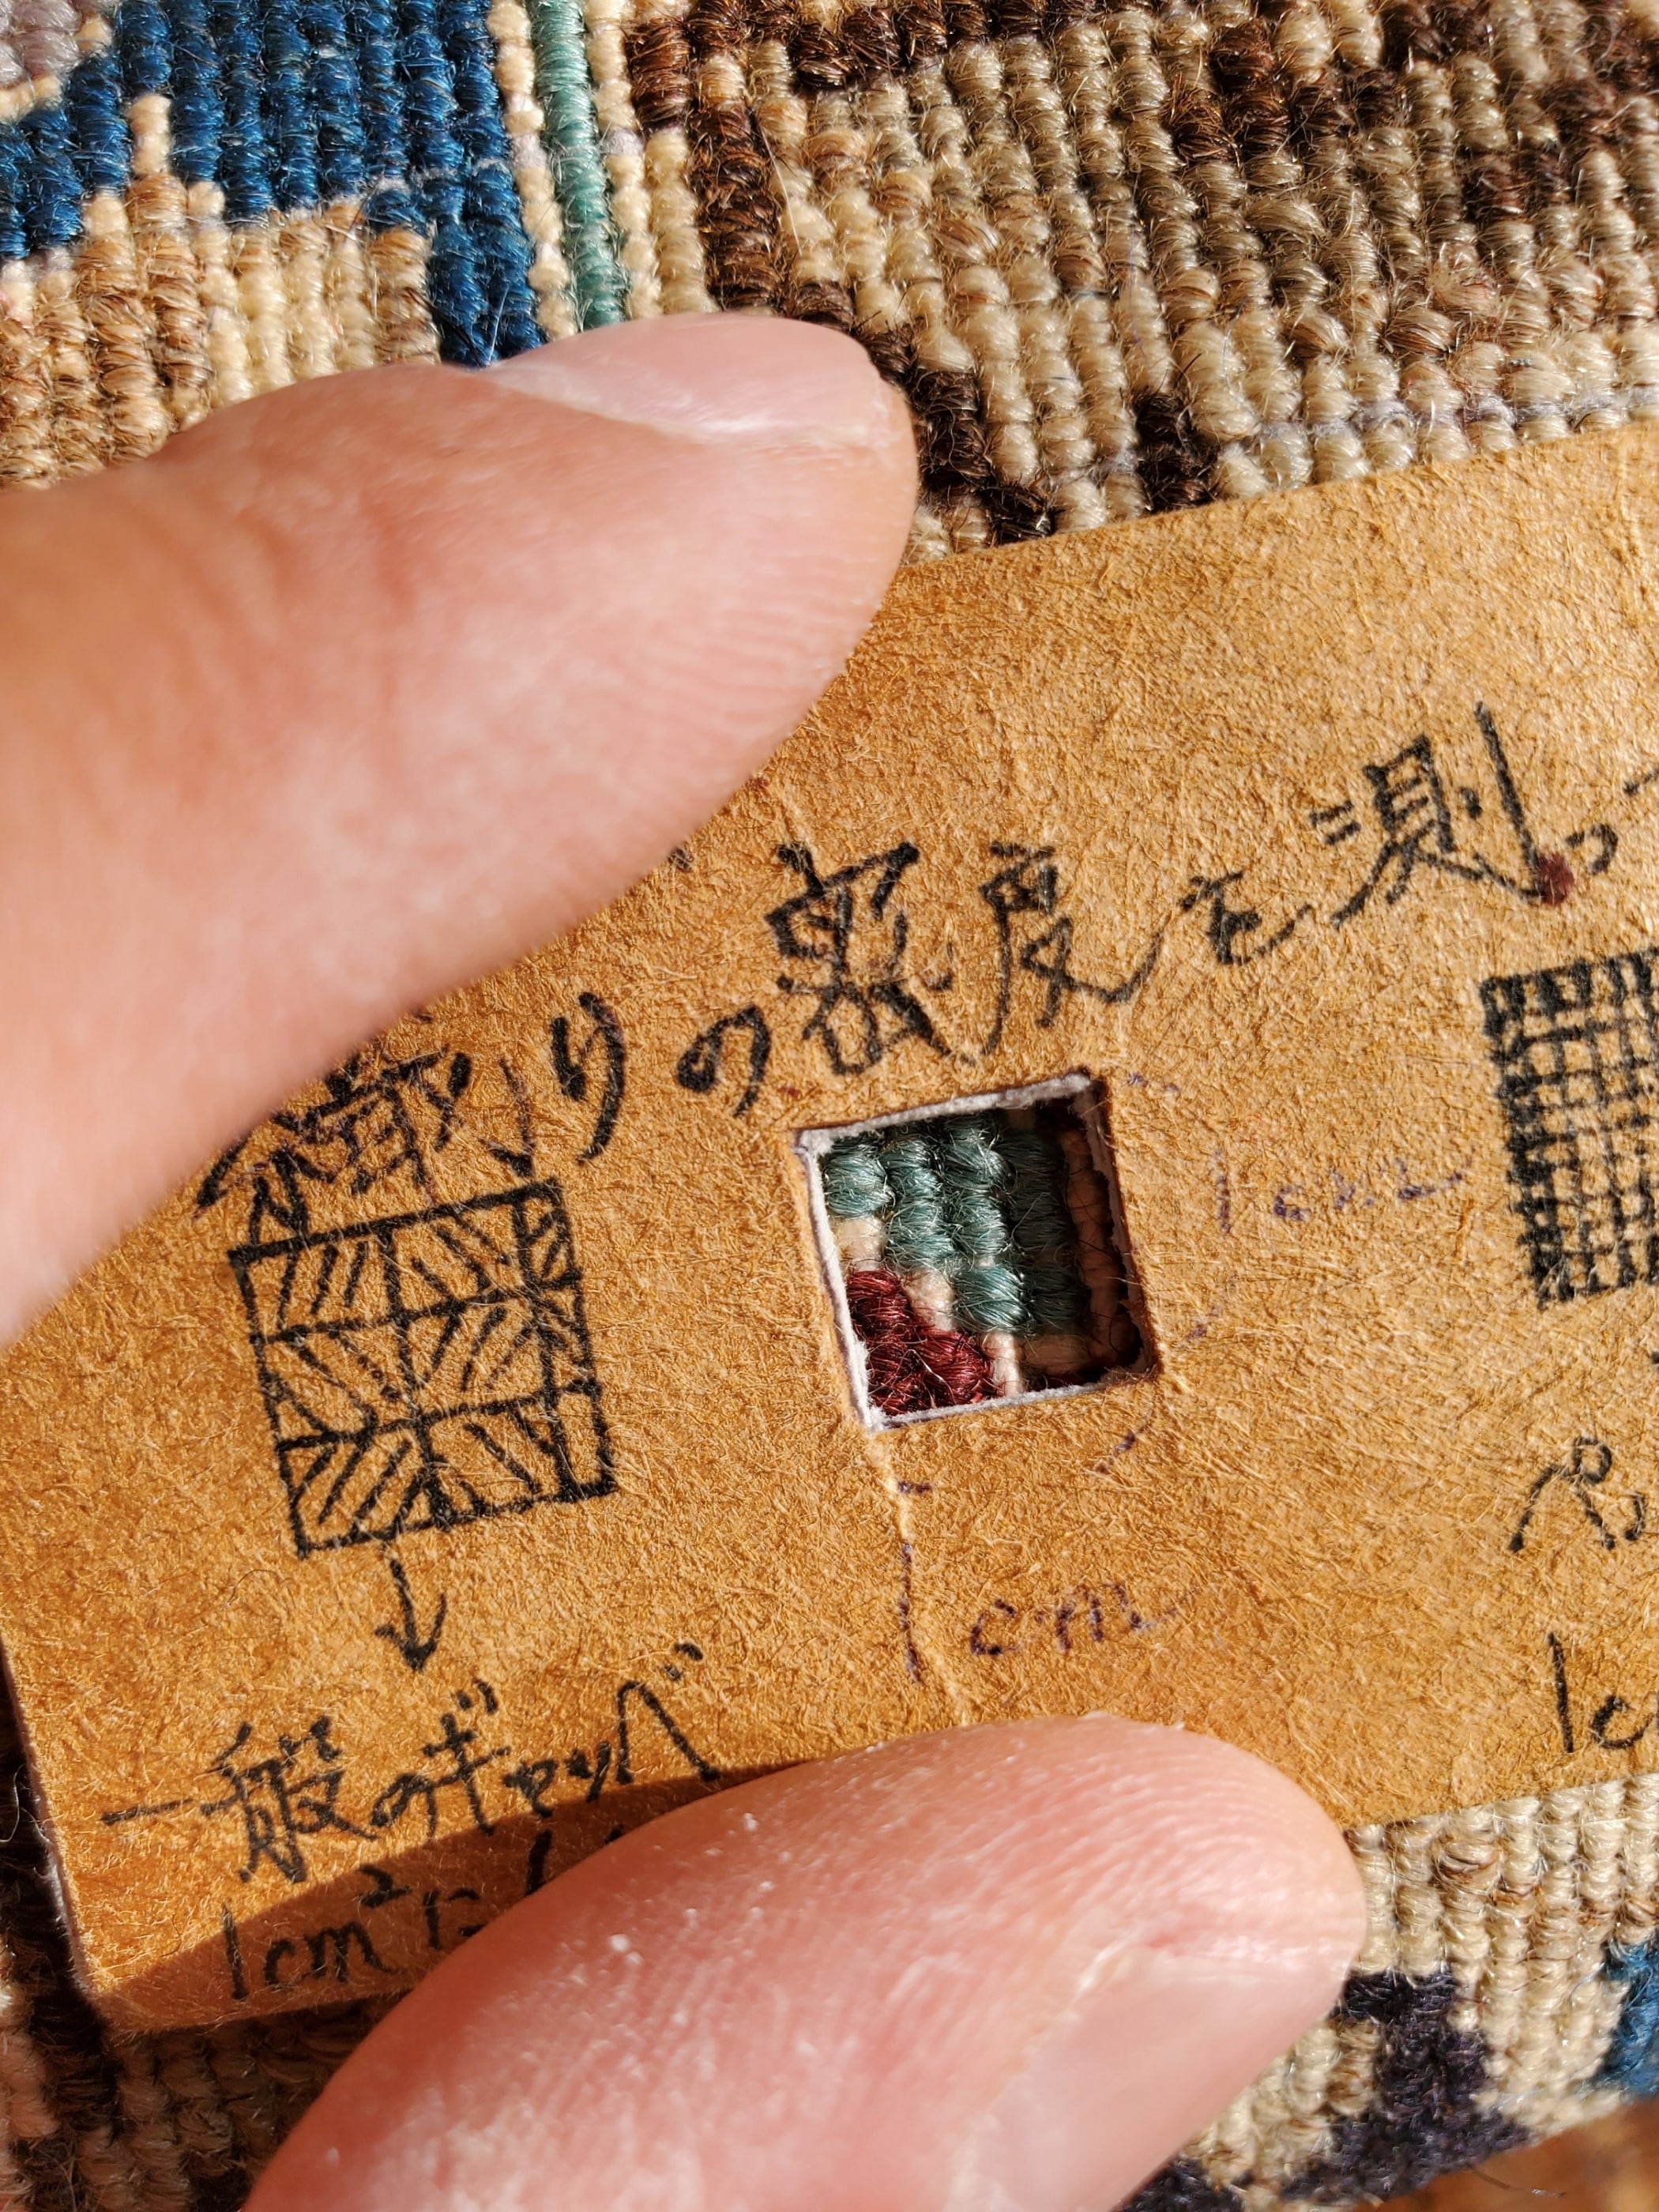 織りの裏度を測っ
1cm
1cm
一般のギャッベ
1cm²に
ペ
1c